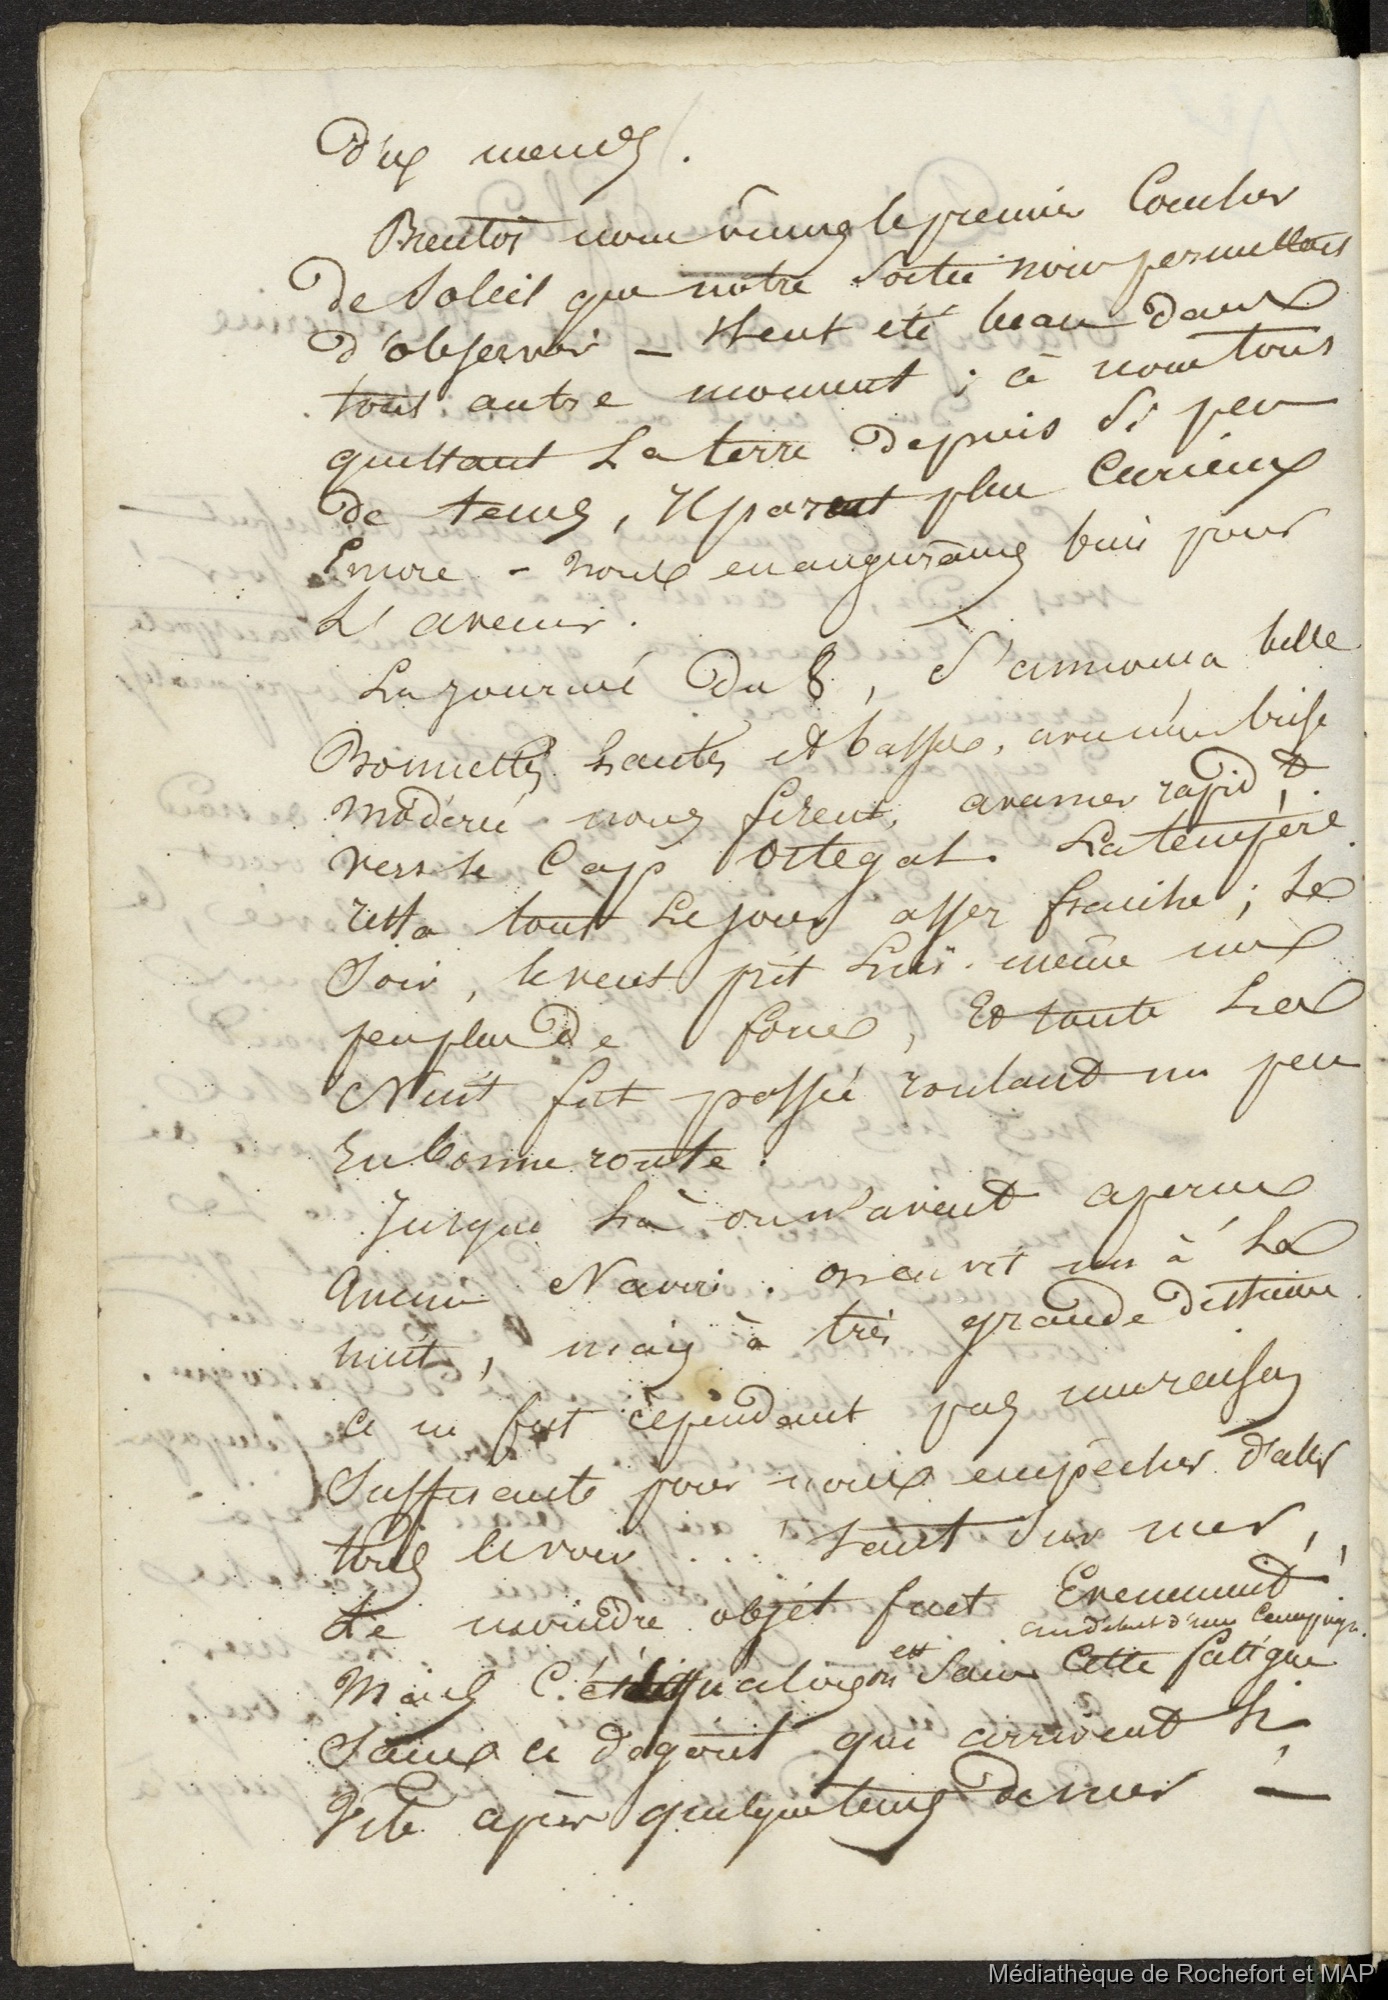 dix nœuds.
Bientôt nous vîmes le premier Coucher
de Soleil que notre Sortie nous permettait
d'observer – Il eut été beau dans
tout autre moment ; à nous tous
quittant La terre depuis Si peu
de tems, Il parut plus Curieux
Encore – nous en augurâmes bien pour
L'avenir.
La journée du 8, S'annonca belle
Bonnettes hautes et basses, avec une brise
modérée nous firent, avancer rapidt.
vers le Cap Ortegal. La tempére
resta tout Le jour assez fraiche ; Le
Soir, le vent prit Lui-même un
peu plus de force, Et toute La
Nuit fut passée roulant un peu
En bonne route.
Jusque Là on n'avait aperçu
Aucun Navire. on en vit un à La
nuit, mais à très grande distance
ce ne fut cependant pas une raison
Suffisante pour nous empêcher d'aller
tous le voir ... tant Sur mer,
Le moindre objet fait Evenement,
au debut d'une Campagne.
Mais C' qu'alors on est Sans Cette fatigue
Sans ce dégoût qui arrivent Si
Vite après quelque tems de mer –
Médiathèque de Rochefort et MAP